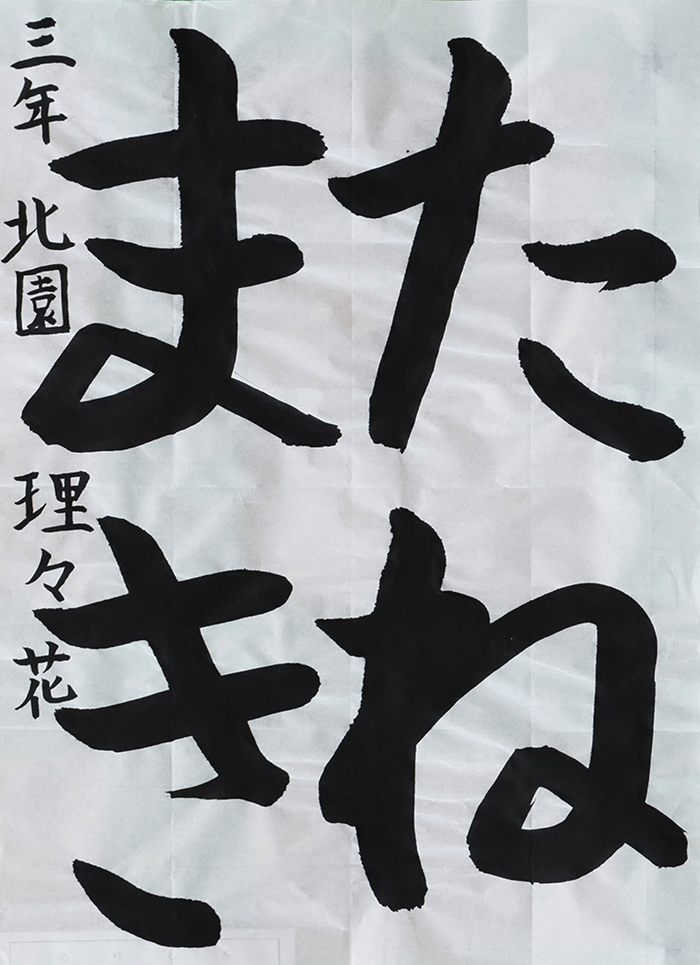 たね
まき
三年 北園 理々花